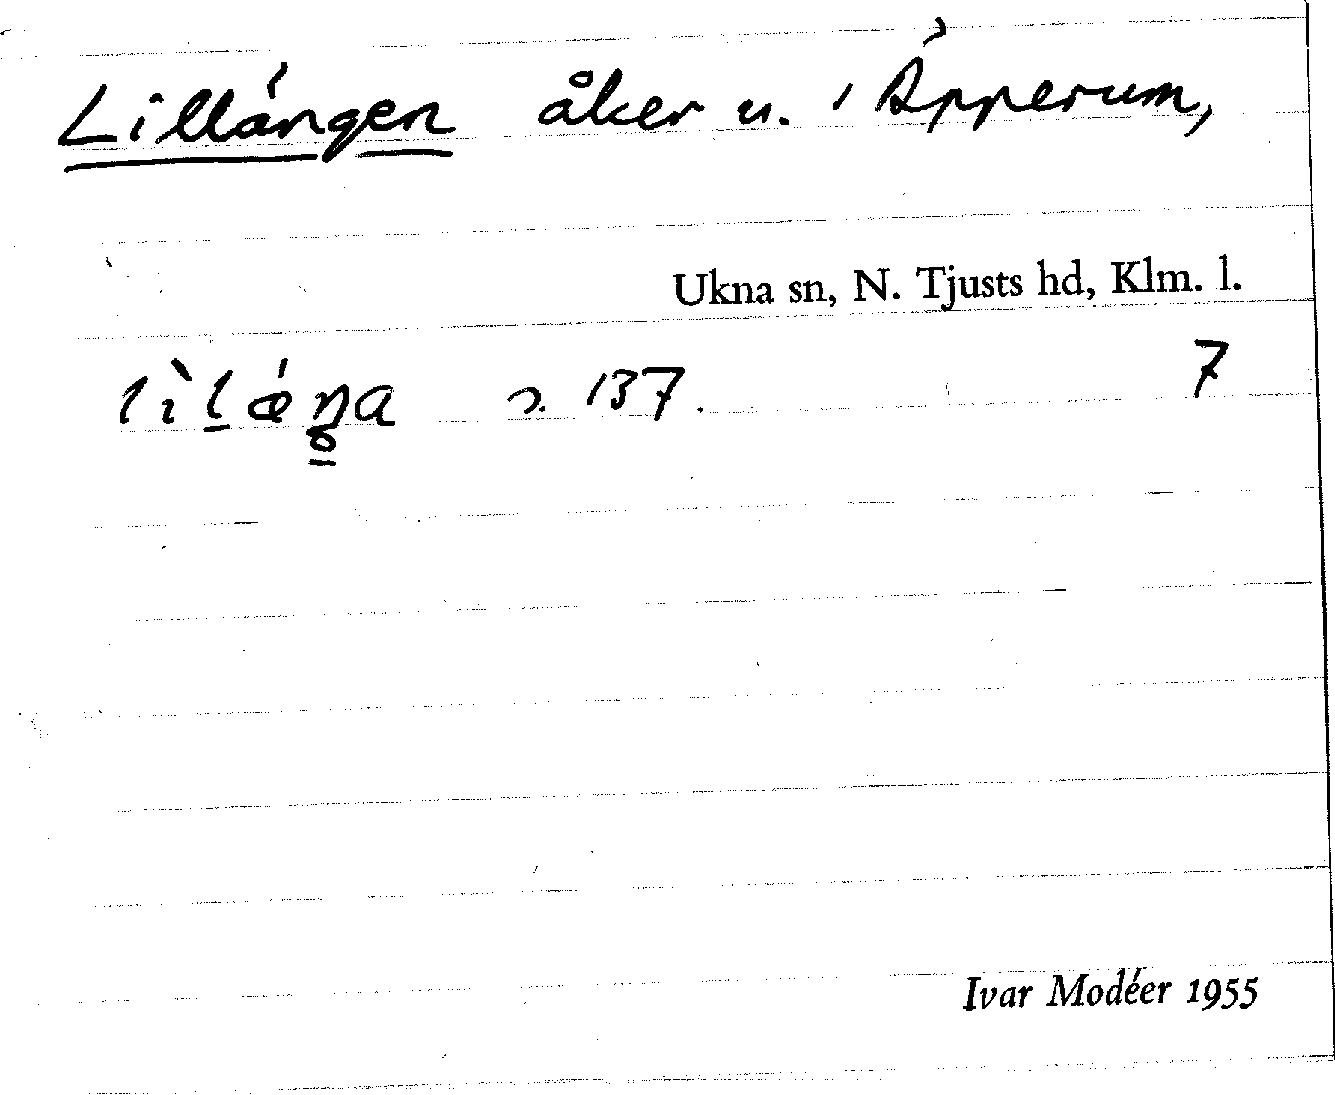 Lillängen åker u. i Äpperum,
Ukna sn, N. Tjusts hd, Klm. l.
7
s. 137.
Ivar Modéer 1955